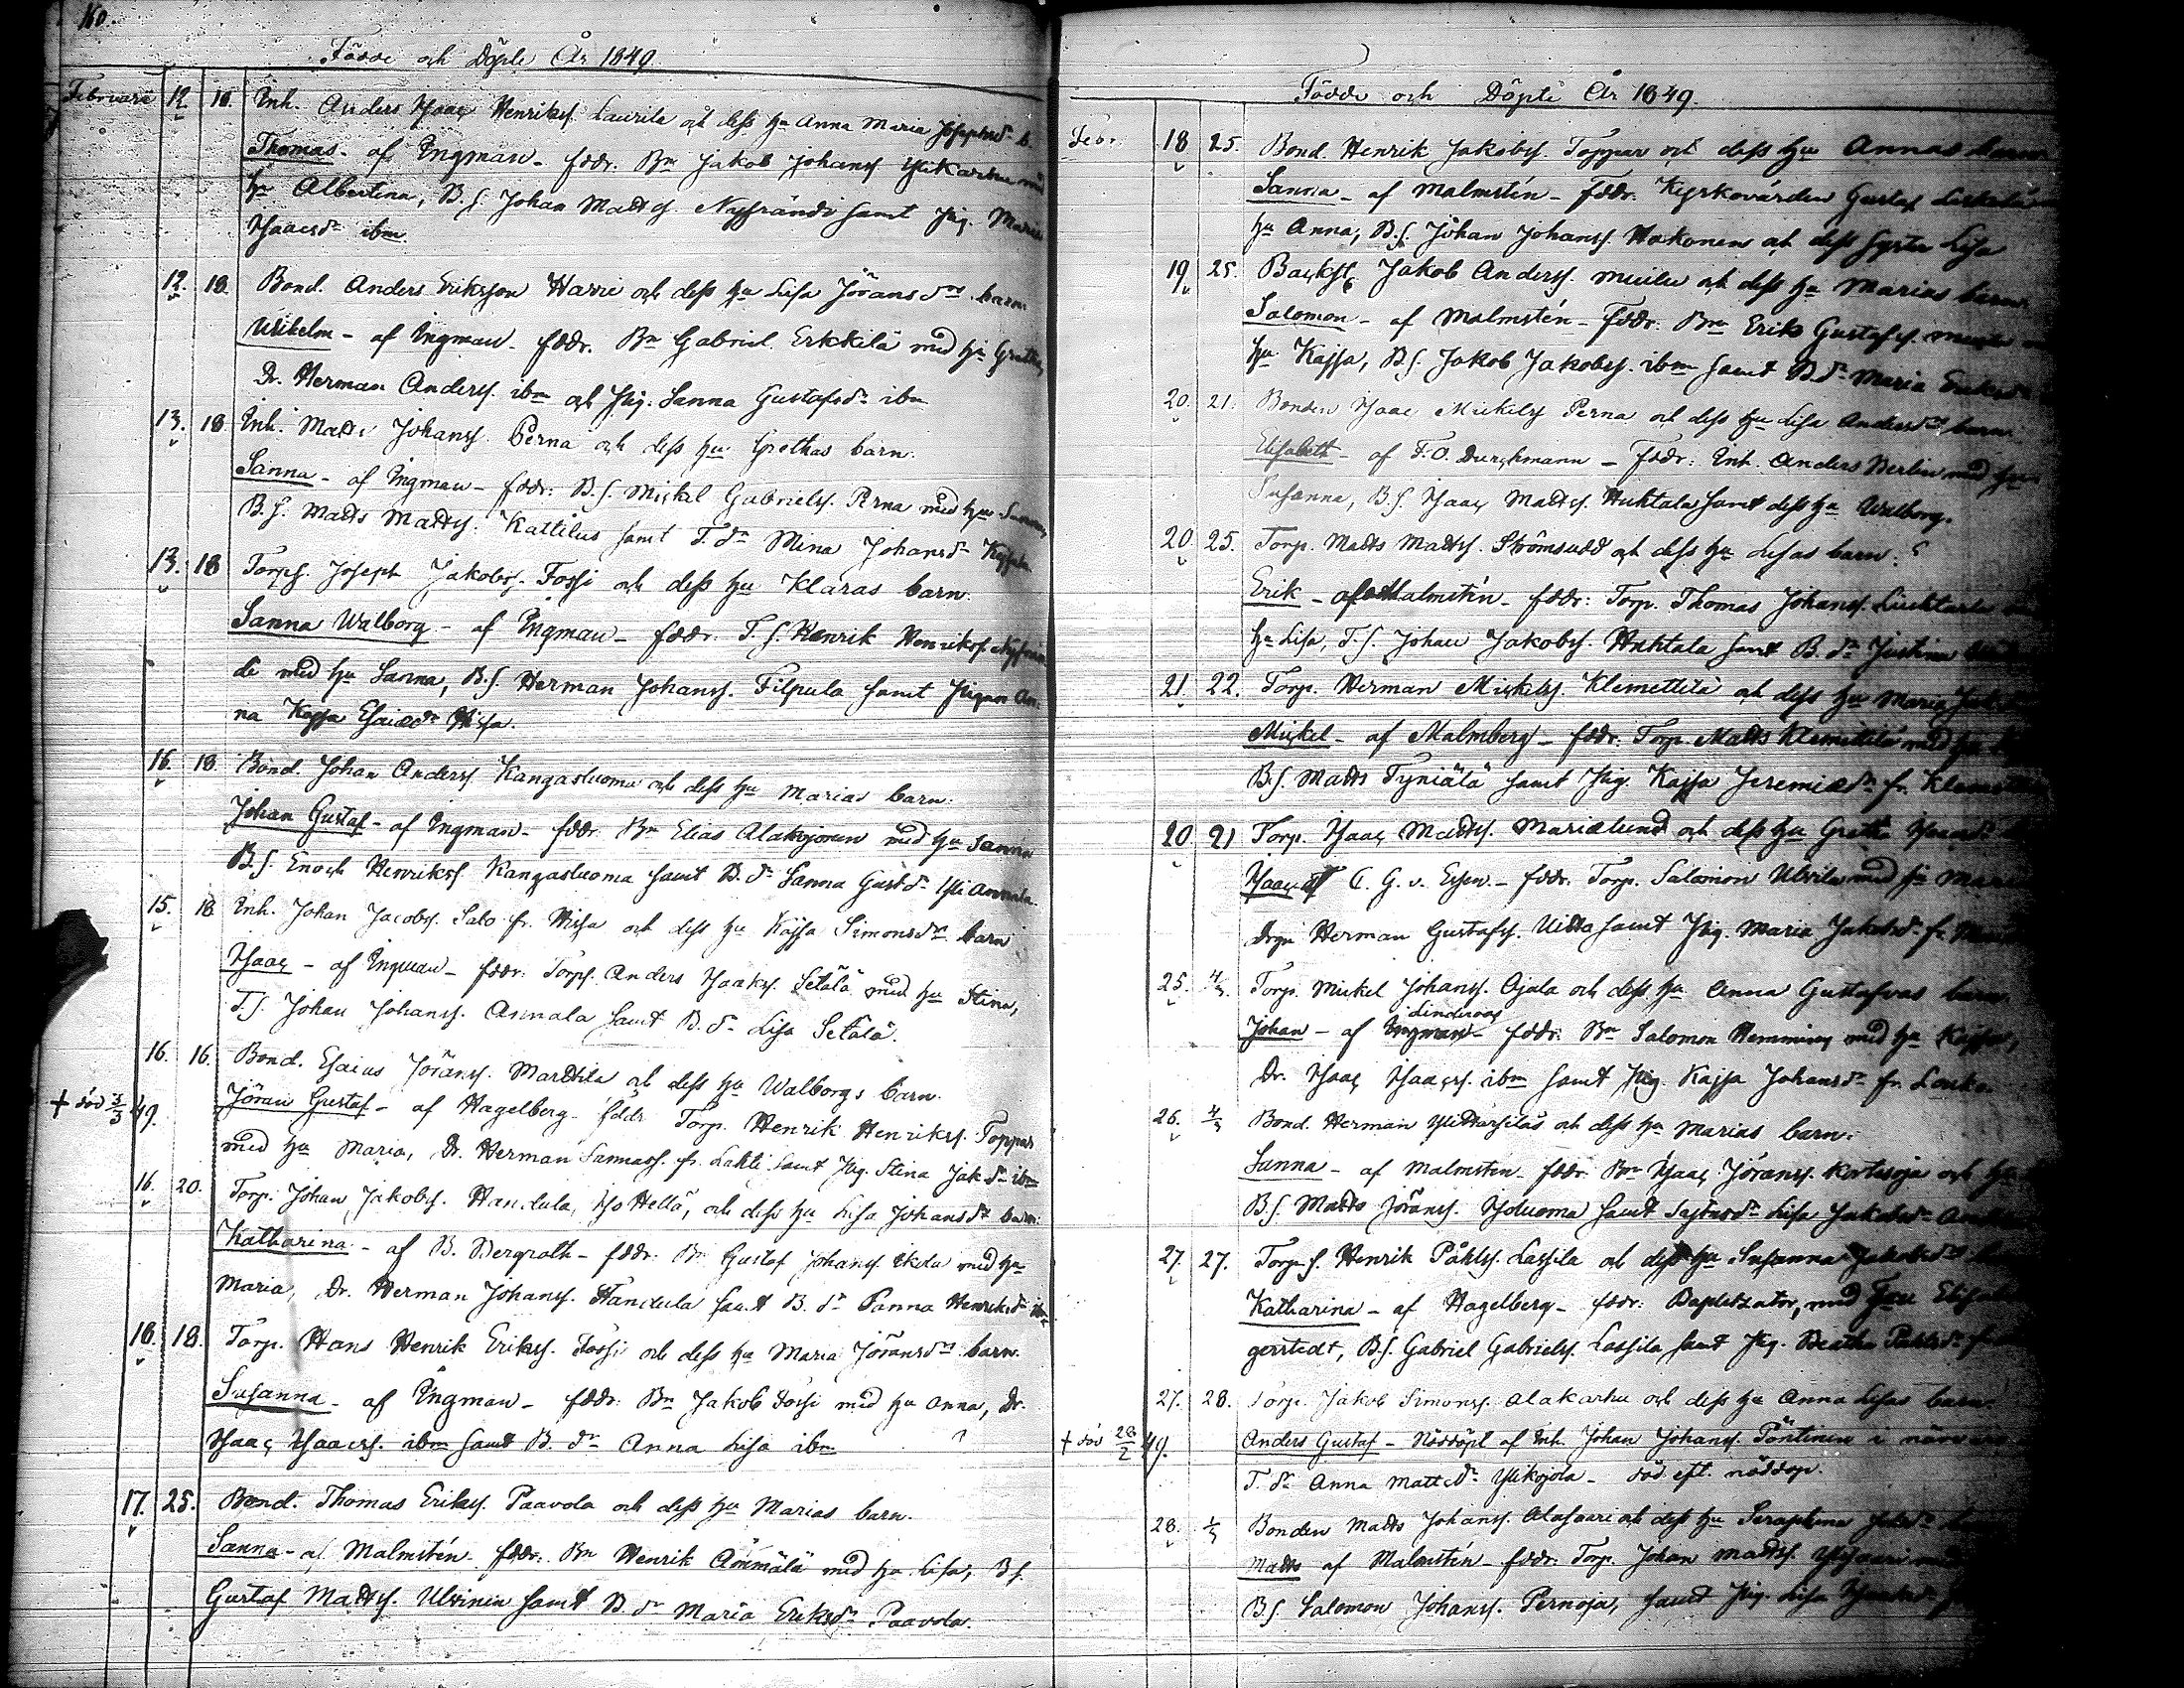 160.
Födde och Döpte År 1849.
Februarii 12 18. Inh. Anders Isaac Henrikss. Laurila och dess hu Anna Maria Josephsdr b.
Thomas - af Ingman - fddr. Bn Jakob Johanss. Ylikarhu med
hu Albertina, B.S. Johan Mattss. Nyfrändi samt Pig. Maria
Isaacsdr ibm.
12. 18. Bond. Anders Eriksson Harri och dess hu Lisa Jöransdrs barn
Wilhelm - af Ingman - fddr. Bn Gabriel Erkkilä med hu Gretha,
Dr. Herman Anderss. ibm och Pig. Sanna Gustafsdr ibm
13. 18 Inh. Matts Johanss. Perna och dess hu Grethas barn.
Sanna - af Ingman - fddr: B.S. Mickel Gabrielss. Perna med hu Sanna,
B.S. Matts Mattss. Kattilus samt T.dr Mina Johansdr
13. 18 Torps. Joseph Jakobss. Fossi och dess hu Klaras barn.
Sanna Walborg - af Ingman - fddr. T.S. Henrik Henrikss. Nyfrän-
de med hu Sanna, B.S. Herman Johanss. Filpula samt Pigan An-
na Kajsa Esaiædr Hissa.
16. 18. Bond. Johan Anderss. Kangasluoma och dess hu Marias barn:
Johan Gustaf - af Ingman - fddr. Bn Elias Alakojonen med hu Sanna
B.S. Enoch Henrikss. Kangasluoma samt B.dr Sanna Gustdr Yli Annala.
15. 18 Inh. Johan Jacobss. Salo fr. Hissa och dess hu Kajsa Simonsdrs barn
Isaac - af Ingman - fddr: Torps. Anders Isaakss. Setälä med hu Stina,
T.S. Johan Johanss. Annala samt B.dr Lisa Setälä.
16. 16. Bond. Esaias Jöranss. Marttila och dess hu Walborgs barn.
+ död 3/3 49. Jöran Gustaf - af Hagelberg - fddr Torp. Henrik Henrikss. Toppar
med hu Maria, Dr. Herman Sannass. fr. Lahti samt Pig. Stina Jak.dr ibm
16. 20. Torp. Johan Jakobss. Handula, Iso Hellä, och dess hu Lisa Johansdrs barn:
Katharina - af B. Bergroth - fddr: Bn Gustaf Johanss. Ikola med hu
Maria, Dr. Herman Johanss. Handula samt B.dr Sanna Henriksdr ibm
18. 18. Torp. Hans Henrik Erikss. Fossi och dess hu Maria Jöransdrs barn.
Susanna - af Ingman - fddr: Bn Jakob Fossi med hu Anna, Dr.
Isaac Isaacss. ibm samt B.dr Anna Lisa ibm
17. 25. Bond. Thomas Erikss. Paavola och dess hu Marias barn.
Sanna - af Malmstén - fddr: Bn Henrik Ämmälä med hu Lisa, BS.
Gustaf Mattss. Ulvinen samt B.dr Maria Eriksdr Paavola.
Födde och Döpte År 1849.
Febr. 18 25. Bond. Henrik Jakobss. Toppar och dess hu Annas barn.
Sanna - af Malmstén - fddr. Kyrkovärden Gustaf
hu Anna, B.S. Johan Johanss. Hakonen och dess syster Lisa
19 25. Backst. Jakob Anderss. och dess hu Marias barn
Salomon - af Malmstén - fddr: Bn Erik Gustafss.
hu Kajsa, B.S. Jakob Jakobss. ibm samt B.dr Maria Eriksdr
20. 21. Bonden Isaac Mickelss Perna och dess hu Lisa Andersdrs barn
Elisabeth - af F.O. Durchmann - fddr: Inh. Anders Berlin med hu
Susanna, B.S. Isaac Mattss. Huhtala samt dess hu Walborg.
20 25. Torp. Matts Mattss. Strömsudd och dess hu Lisas barn:
Erik - af Malmstén - fddr: Torp. Thomas Johanss.
hu Lisa, T.S. Johan Jakobss. Huhtala samt B.dr Justina
21. 22. Torp. Herman Mickelss. Klemettilä och dess hu Maria
Mickel - af Malmberg - fddr: Torp. Matts Klemettilä med hu
B.S. Matts Tyniälä samt Pig. Kajsa Jeremiædr fr.
20. 21 Torp. Isaac Mattss. Marielund och dess hu Greta Isaacsdr
Isaac af C. G. v. Essen - fddr. Torp. Salomon Ulvila med hu
Drgn Herman Gustafss. samt Pig. Maria Jakobsdr fr.
25. 4/3. Torp. Mickel Johanss. Ojala och dess hu Anna Gustafvas barn.
Linderoos
Johan - af Ingman - fddr: Bn Salomon Hemming med hu Kajsa,
Dr. Isaac Isaacss. ibm samt Pig. Kajsa Johansdr fr.
26. 4/3 Bond. Herman och dess hu Marias barn:
Sanna - af Malmstén - fddr: Bn Isaac Jöranss. Kortesoja och hu
B.S. Matts Jöranss. samt Lisa Jakobsdr
27. 27. Torp.S. Henrik Påhlss. Lassila och dess hu Susanna Jakobsdrs
Katharina - af Hagelberg - fddr: Baptizator, med Fru
gerstedt, B.S. Gabriel Gabrielss. Lassila samt Pig. Beatha Påhlsdr
27. 28. Torp. Jakob Simonss. Alakarhu och dess hu Anna Lisas barn.
+ död 28/2 49. Anders Gustaf - Nöddöpt af Inh. Johan Johanss. Pöntinen i närv
T.dr Anna Mattsdr Ylikojola - död eft. nöddop.
28. 1/3 Bonden Matts Johanss. Alasaari och dess hu Seraphina
Matts af Malmstén - fddr: Torp. Johan Mattss.
B.S. Salomon Johanss. Pernoja, samt Pig. Lisa